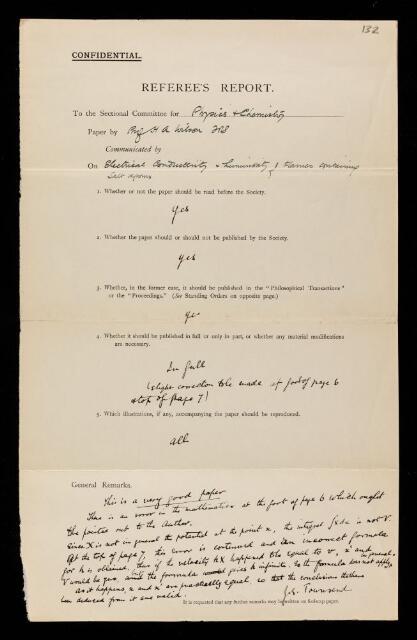 132
CONFIDENTIAL.
REFEREE'S REPORT.
To the Sectional Committee for Physics & Chemistry
Paper by Prof H A Wilson FRS
Communicated by
On Electrical Conductivity & Luminosity of Flames containing
Salt vapours
1. Whether or not the paper should be read before the Society.
yes
2. Whether the paper should or should not be published by the Society.
yes
3. Whether, in the former case, it should be published in the "Philosophical Transactions"
or the "Proceedings." (See Standing Orders on opposite page.)
yes
4. Whether it should be published in full or only in part, or whether any material modifications
are necessary.
In full
(slight correction to be made at foot of page 6
& top of page 7)
5. Which illustrations, if any, accompanying the paper should be reproduced.
all
General Remarks.
This is a very good paper
There is an error in the mathematics at the foot of page 6 which ought
to be pointed out to the author.
Since X is not in general the potential at the point x, the integral ∫xdx is not V.
At the top of page 7, this error is continued and an incorrect formula
for k is obtained, thus if the velocity kX happened to be equal to v,
V would be zero, and the formula would give k infinite. So the formula does not apply in general.
as it happens, x and x' are practically equal so that the conclusions
deduced from it are valid.
J.S. Townsend
It is requested that any further remarks may be written on foolscap paper.